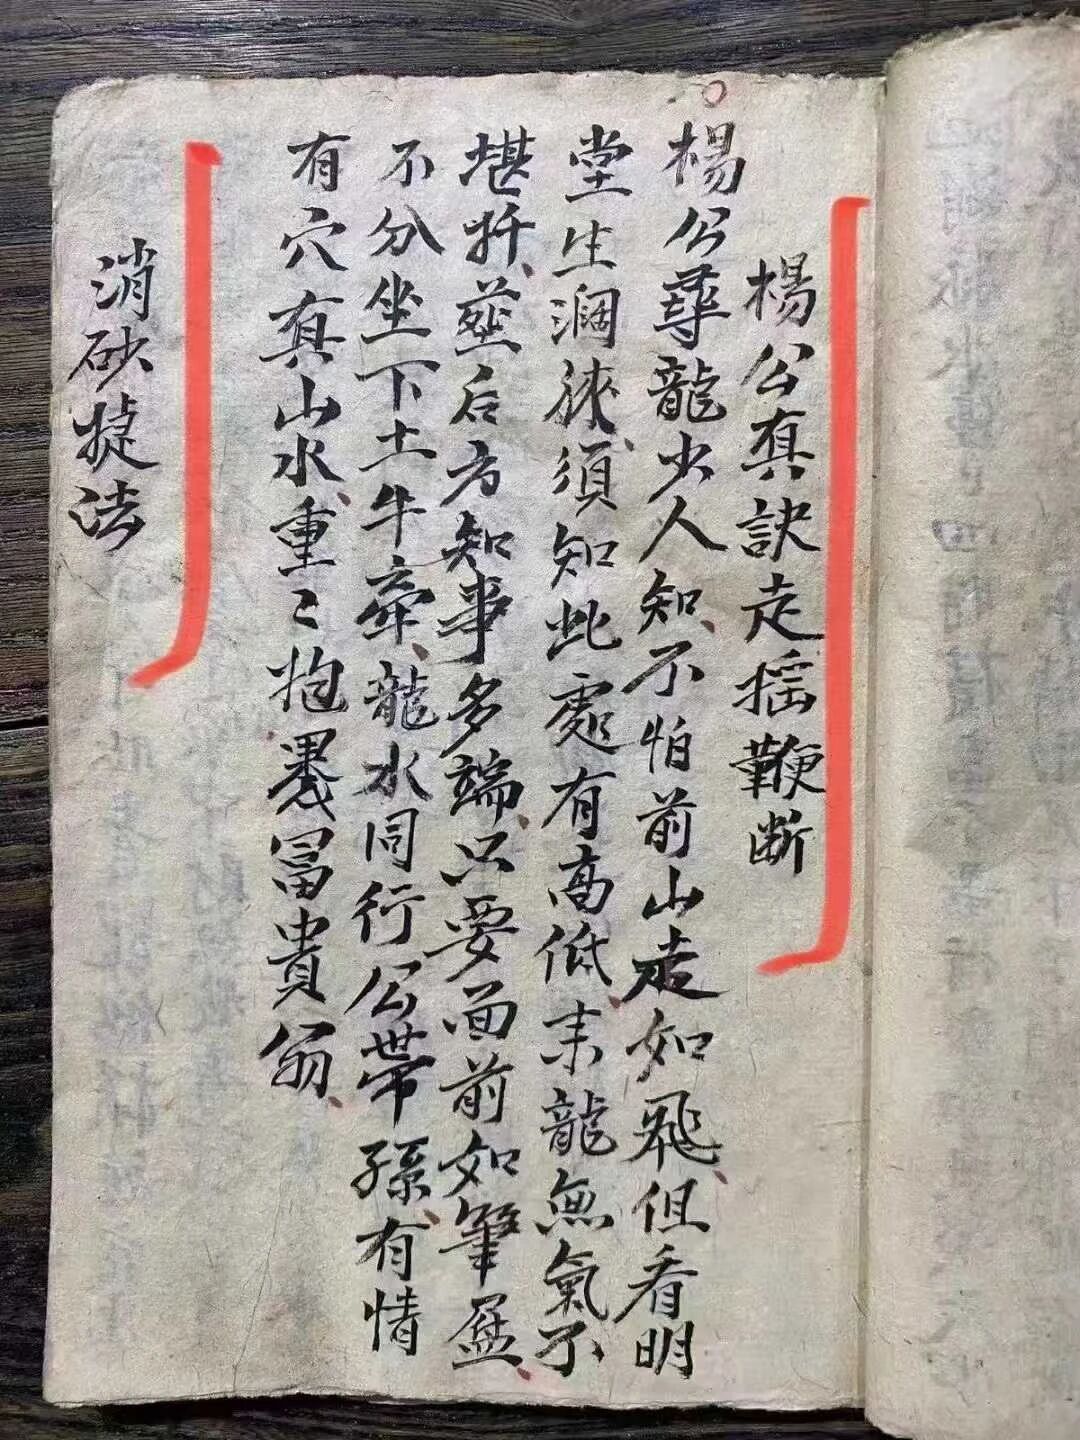 楊公真訣走摇鞭断
楊公尋龍少人知、不怕前山走如飛、但看明
堂生濶狹、須知此處有高低、来龍無氣不
堪扦、塟后方知事多端、只要面前如筆
不分坐下土牛牽、龍水同行公帶孫、有情
有穴真山水、重〻抱褁冨貴翁、
消砂捷法